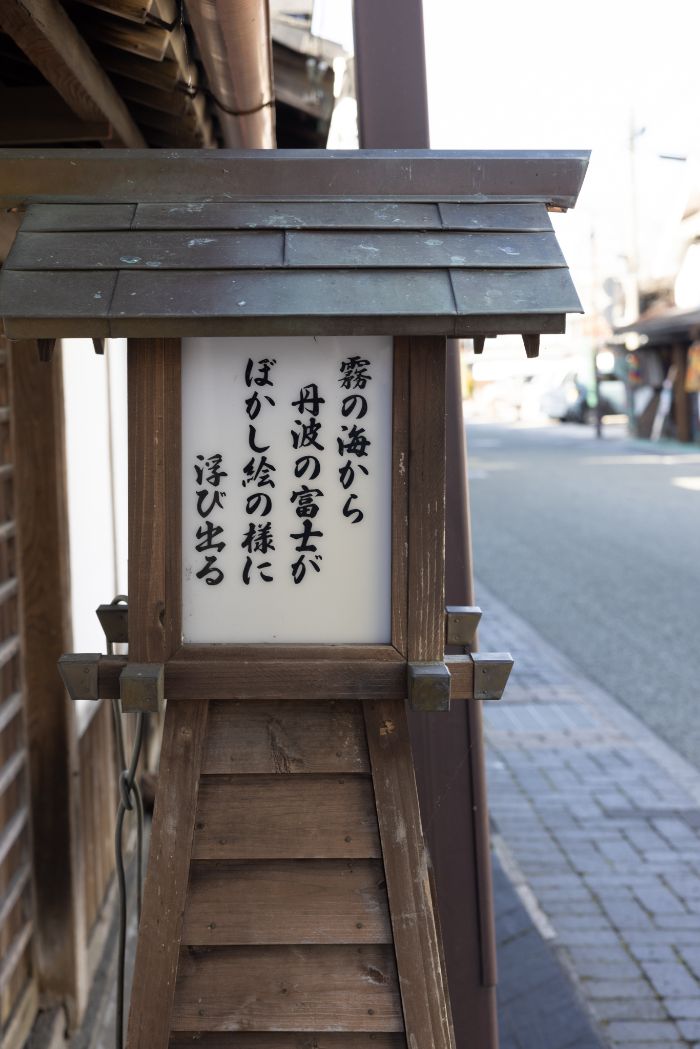 霧の海から
丹波の富士が
ぼかし絵の様に
浮び出る